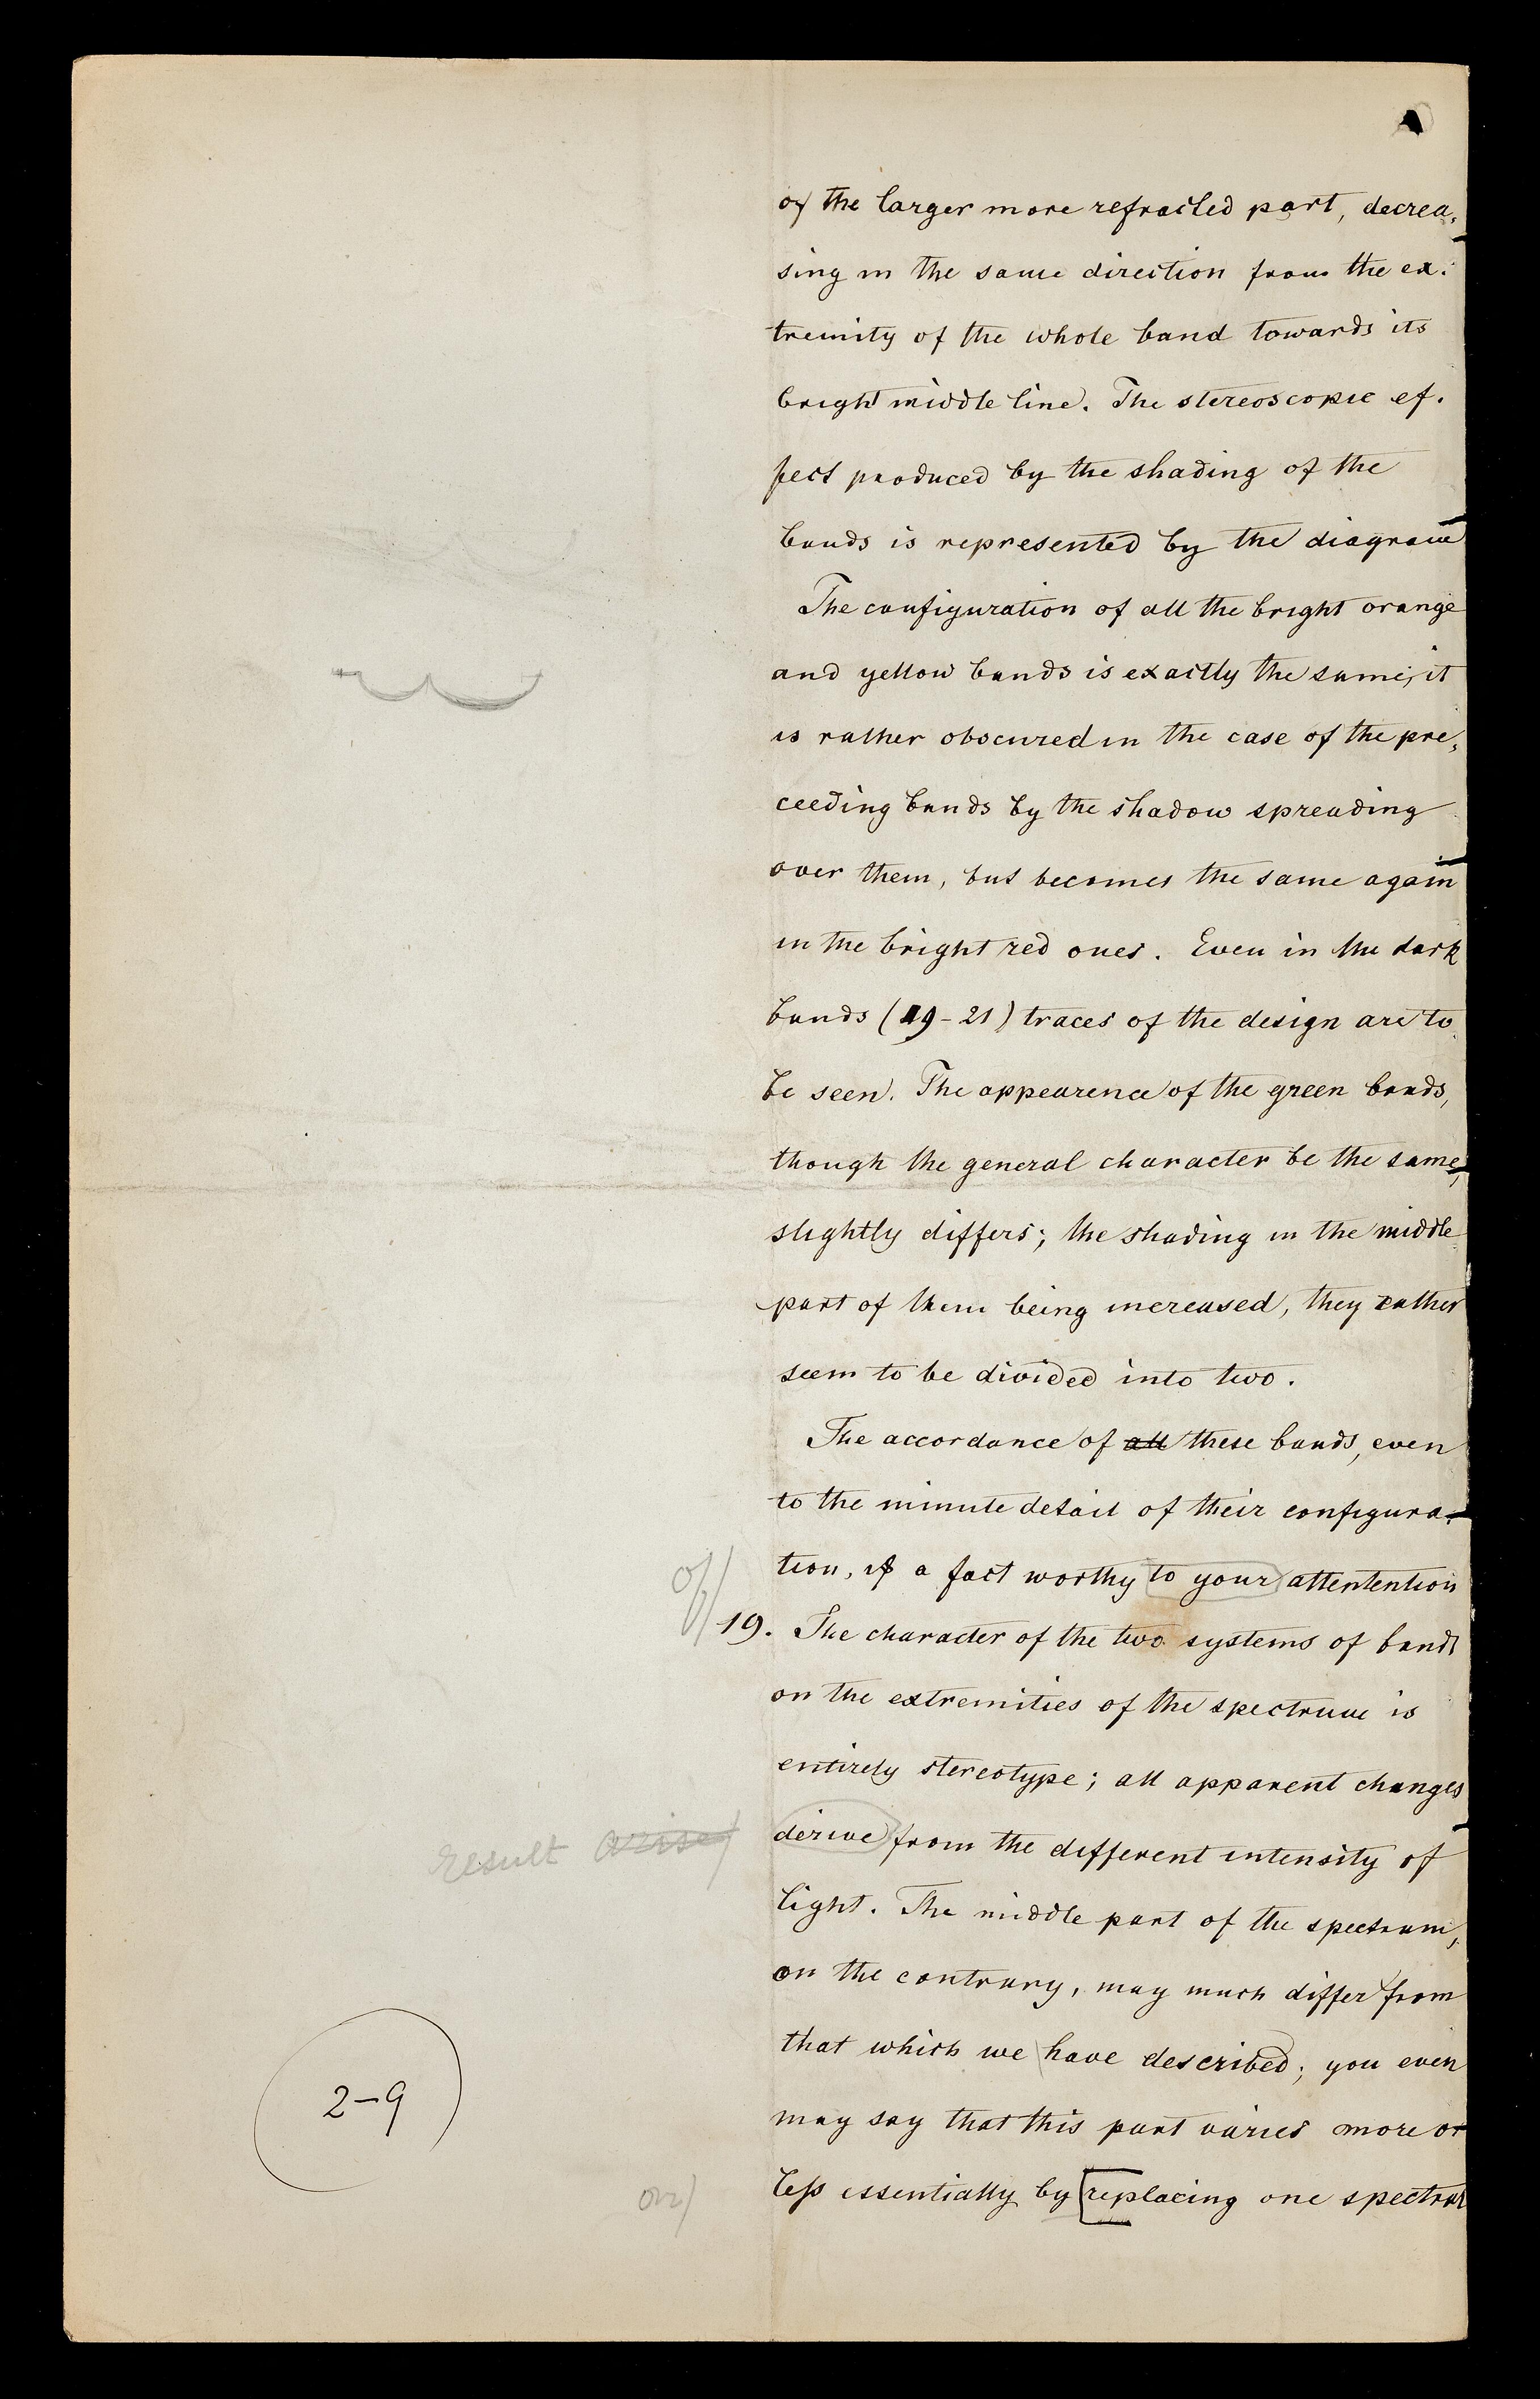 of the larger more refracted part, decrea-
sing in the same direction from the ex-
tremity of the whole band towards its
bright middle line. The stereoscopic ef-
fect produced by the shading of the
bands is represented by the diagram
The configuration of all the bright orange
and yellow bands is exactly the same; it
is rather obscured in the case of the pre-
ceeding bands by the shadow spreading
over them, but becomes the same again
in the bright red ones. Even in the dark
bands (19-21) traces of the design are to
be seen. The appearence of the green bands,
though the general character be the same,
slightly differs; the shading in the middle
part of them being increased, they rather
seem to be divided into two.
The accordance of all these bands, even
to the minute detail of their configura-
tion, is a fact worthy to your attentention
of/
19. The character of the two systems of bands
on the extremities of the spectrum is
entirely stereotype; all apparent changes
result arise/
derive from the different intensity of
light. The middle part of the spectrum,
on the contrary, may much differ from
that which we have described; you even
may say that this part varies more or
2-9
on)
less essentially by [replacing one spectral